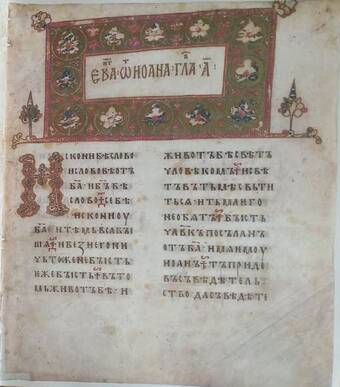 ЕВⷢ҇А ѠТ ИОАНА ГЛАⷡ҇ А҃
ИСКОНИ БѢ СЛОВО
И СЛОВО БѢ ОТЪ
БА҃ И БЪ҃ БѢ
СЛОВО СЕ БѢ
ИСКОНИ ОУ
БА҃ И ТѢМЬ ВЬСА БЫ
ШѦ И БЕЗ НЕГО НИ
ЧЬТОЖЕ НЕ БЫСТЬ
ѤЖЕ БЫСТЬ ВЪ ТО
МЬ ЖИВОТЪ БѢ И
ЖИВОТЪ БѢ СВѢТЪ
ЧЛОВѢКОМЪ И СВѢ
ТЪ ВЪ ТЬМѢ СВЬТИ
ТЬСѦ И ТЬМА ѤГО
НЕ ОБѦТЪ БЫСТЬ
ЧЛ҃ВКЪ ПОСЪЛАНЪ
ОТЪ БА҃ ИМѦ ѤМОУ
ИОАНЪ ТЪ ПРИДЕ
ВЪ СЪВѢДѢТЕЛЬ
СТВО ДА СЪВѢДѢТЕ